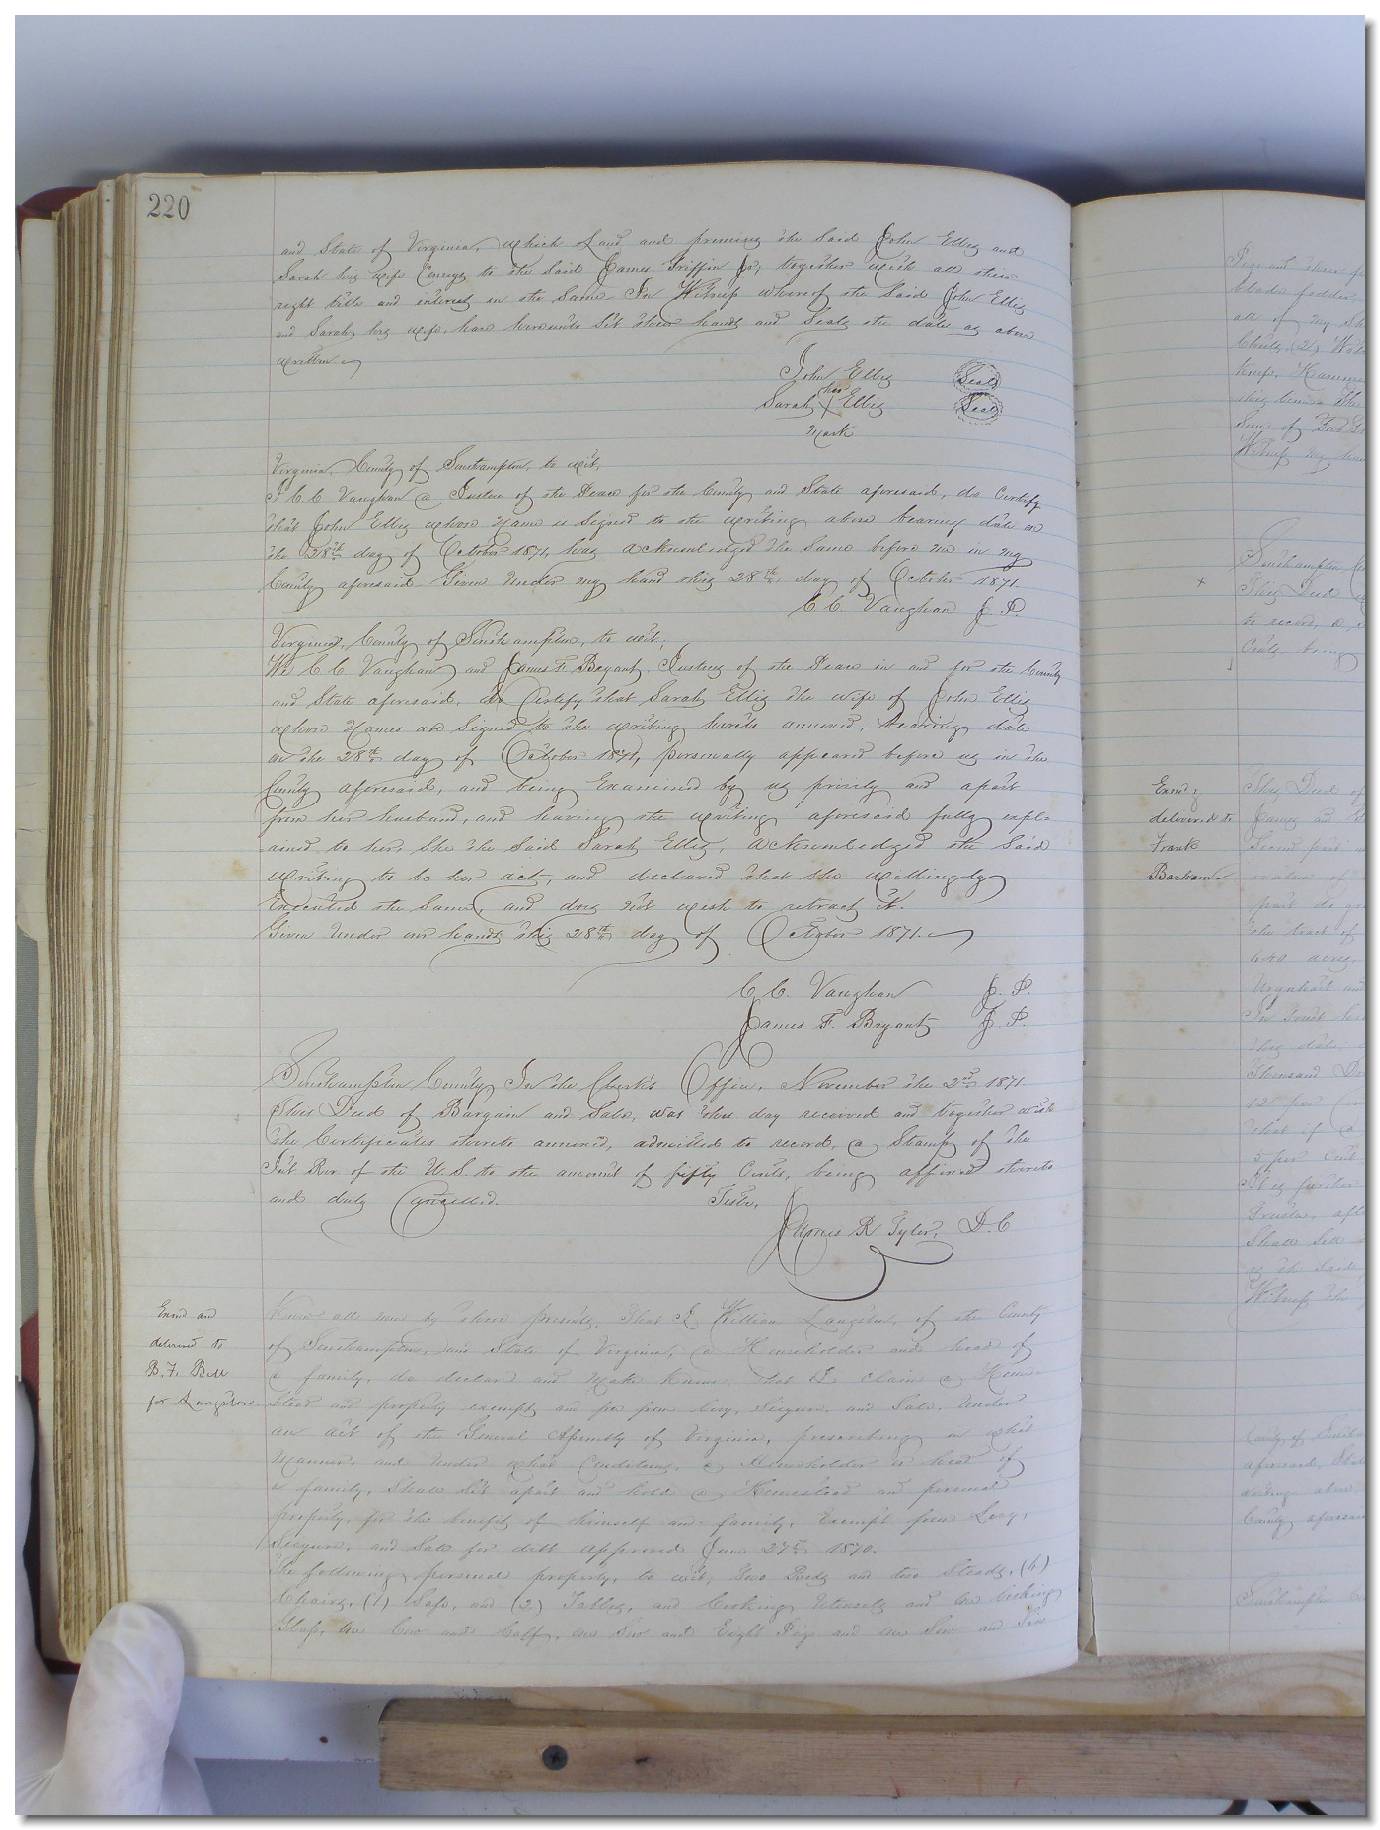 220
and State of Virginia, which Land and premises the Said John Ellis and
Sarah his wife Conveys to the Said James Griffin Jr, together with all their
right title and interest in the Same In Witness whereof the Said John Ellis
and Sarah his wife, have hereunto Set their hands and Seals the date as above
written.
John Ellis Seal
her
Sarah X Ellis Seal
Mark
Virginia, County of Southampton, to wit,
I C. C. Vaughan a Justice of the Peace for the County and State aforesaid, do Certify
that John Ellis whose Name is Signed to the writing above bearing date on
the 28th day of October 1871, has acknowledged the Same before me in my
County aforesaid Given Under my hand this 28th day of October 1871.
C. C. Vaughan J. P.
Virginia, County of Southampton, to wit,
We C C Vaughan and James F. Bryant, Justices of the Peace in and for the County
and State aforesaid, do Certify that Sarah Ellis the wife of John Ellis
whose Names are Signed to the writing hereto annexed, bearing date
on the 28th day of October 1871, personally appeared before us in the
County aforesaid, and being Examined by us privily and apart
from her husband, and having the writing aforesaid fully expl-
ained to her, She the Said Sarah Ellis, acknowledged the Said
writing to be her act, and declared that she willingly
Executed the Same, and does not wish to retract it.
Given Under our hands this 28th day of October 1871.
C. C. Vaughan J. P.
James F. Bryant J. P.
Southampton County In the Clerk's Office, November the 2nd 1871
This Deed of Bargain and Sale, was this day received and together with
the Certificates thereto annexed, admitted to record, a Stamp of the
Int Rev. of the U. S. to the amount of fifty Cents, being affixed thereto
and duly Cancelled. Teste,
James R Tyler, D. C
Exmd and
delivered to
B. F. Bell
for Langston
Know all men by these presents, That I William Langston, of the County
of Southampton, and State of Virginia, a Householder and head of
a family, do declare and make known that I claim a Home-
stead and property exempt and free from levy, Seizure, and Sale, Under
an act of the General Assembly of Virginia, prescribing in what
Manner and Under what Conditions, a Householder or head of
a family, Shall Set apart and hold a Homestead and personal
property, for the benefit of himself and family, Exempt from Levy,
Seizure, and Sale for debt approved June 27th 1870.
The following personal property, to wit; Two Beds and two Steads, (6)
Chairs, (1) Safe, and (2) Tables, and Cooking Utensils and one looking
Glass, one Cow and Calf, one Sow and Eight Pigs and one Sow and
Exmd &
delivered to
Frank
Barham
This Deed
640 acres
In Trust
Thousand
5 per Cent
County of
aforesaid,
County aforesaid